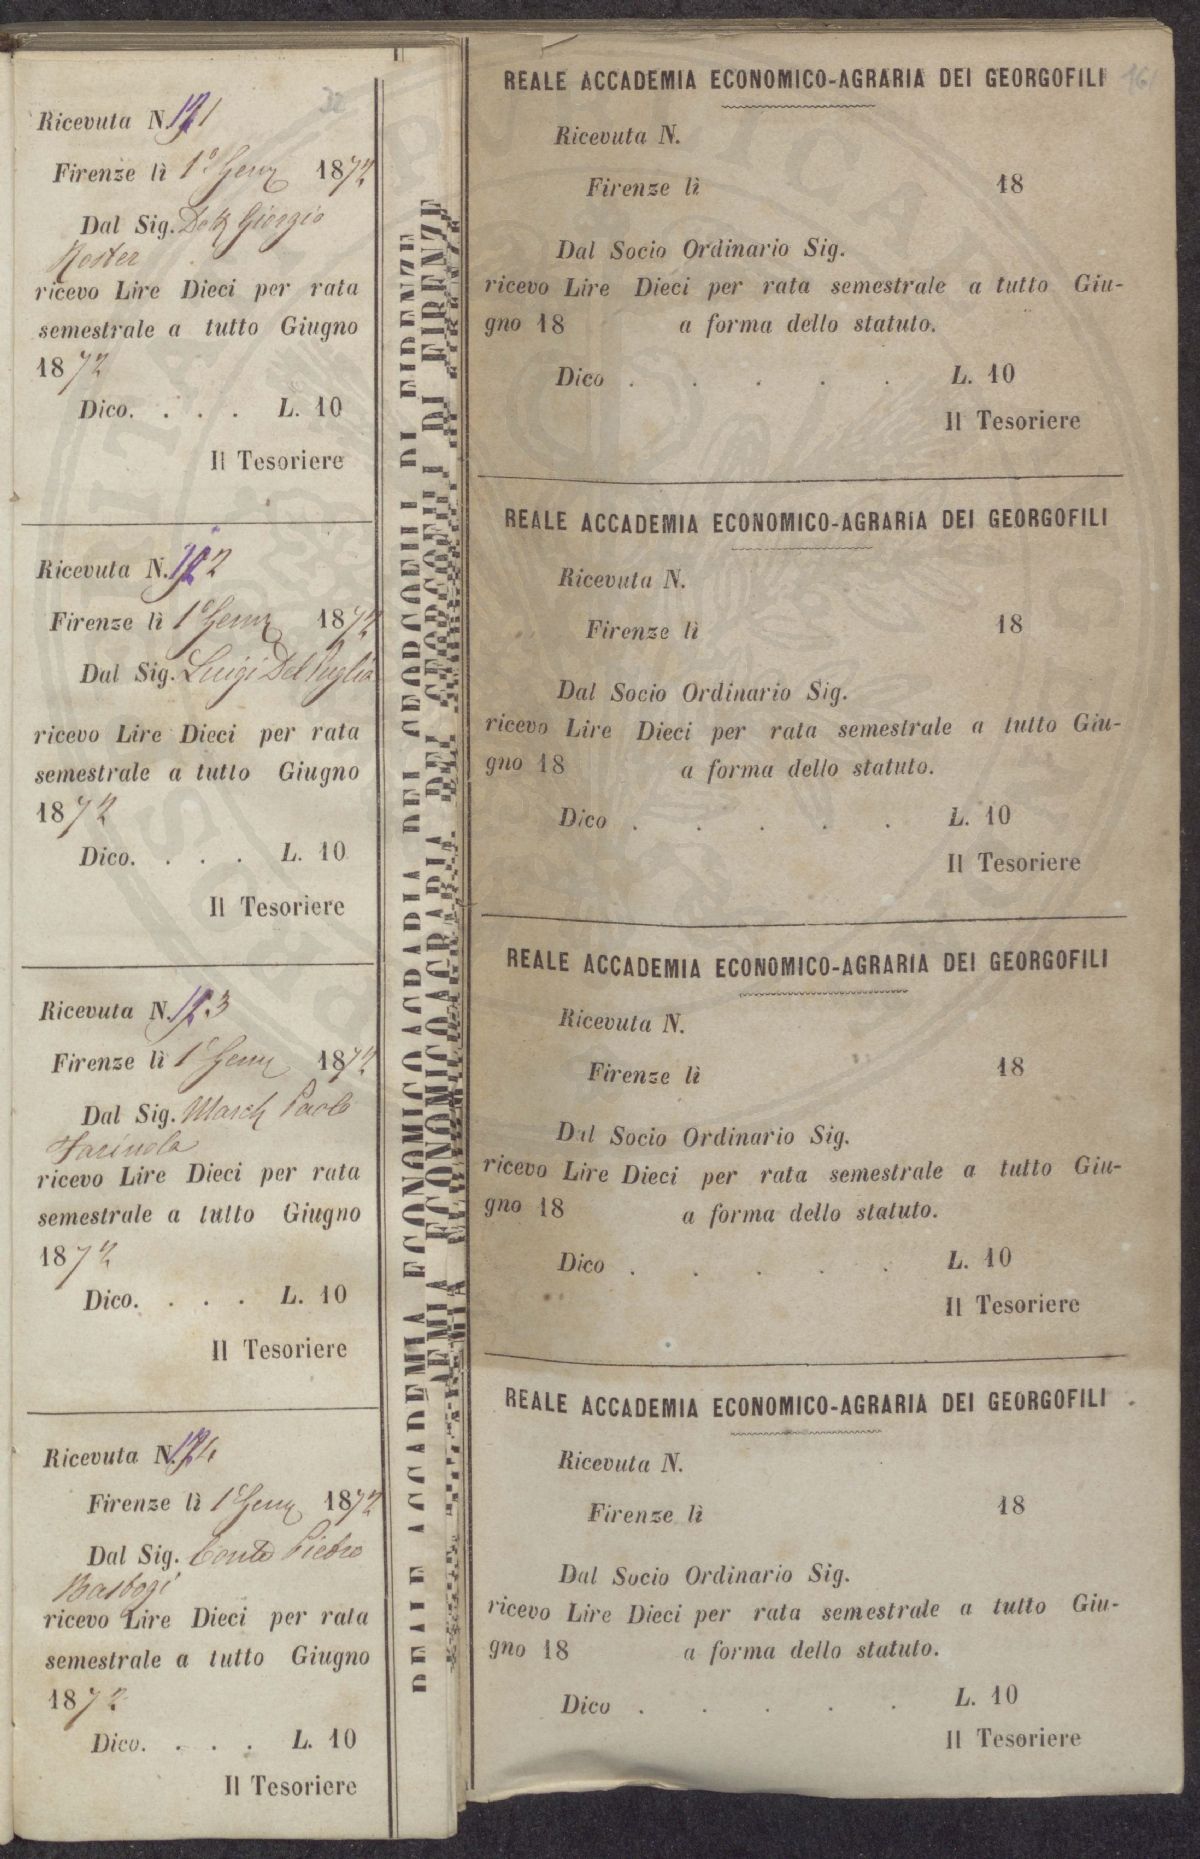 32
Ricevuta N. 121
Firenze lì 1° Genn 1872
Dal Sig. Dott Giorgio
Roster
ricevo Lire Dieci per rata
semestrale a tutto Giugno
1872
Dico. . . . L. 10
Il Tesoriere
Ricevuta N. 122
Firenze lì 1° Genn 1872
Dal Sig. Luigi Del Puglia
ricevo Lire Dieci per rata
semestrale a tutto Giugno
1872
Dico. . . . L. 10
Il Tesoriere
Ricevuta N. 123
Firenze lì 1° Genn 1872
Dal Sig. March Paolo
Farinola
ricevo Lire Dieci per rata
semestrale a tutto Giugno
1872
Dico. . . . L. 10
Il Tesoriere
Ricevuta N. 124
Firenze lì 1° Genn 1872
Dal Sig. Conte Pietro
Bastogi
ricevo Lire Dieci per rata
semestrale a tutto Giugno
1872
Dico. . . . L. 10
Il Tesoriere
REALE ACCADEMIA ECONOMICO AGRARIA DEI GEORGOFILI DI FIRENZE
161
REALE ACCADEMIA ECONOMICO-AGRARIA DEI GEORGOFILI
Ricevuta N.
Firenze lì 18
Dal Socio Ordinario Sig.
ricevo Lire Dieci per rata semestrale a tutto Giu-
gno 18 a forma dello statuto.
Dico . . . . . L. 10
Il Tesoriere
REALE ACCADEMIA ECONOMICO-AGRARIA DEI GEORGOFILI
Ricevuta N.
Firenze lì 18
Dal Socio Ordinario Sig.
ricevo Lire Dieci per rata semestrale a tutto Giu-
gno 18 a forma dello statuto.
Dico . . . . . L. 10
Il Tesoriere
REALE ACCADEMIA ECONOMICO-AGRARIA DEI GEORGOFILI
Ricevuta N.
Firenze lì 18
Dal Socio Ordinario Sig.
ricevo Lire Dieci per rata semestrale a tutto Giu-
gno 18 a forma dello statuto.
Dico . . . . . L. 10
Il Tesoriere
REALE ACCADEMIA ECONOMICO-AGRARIA DEI GEORGOFILI
Ricevuta N.
Firenze lì 18
Dal Socio Ordinario Sig.
ricevo Lire Dieci per rata semestrale a tutto Giu-
gno 18 a forma dello statuto.
Dico . . . . . L. 10
Il Tesoriere